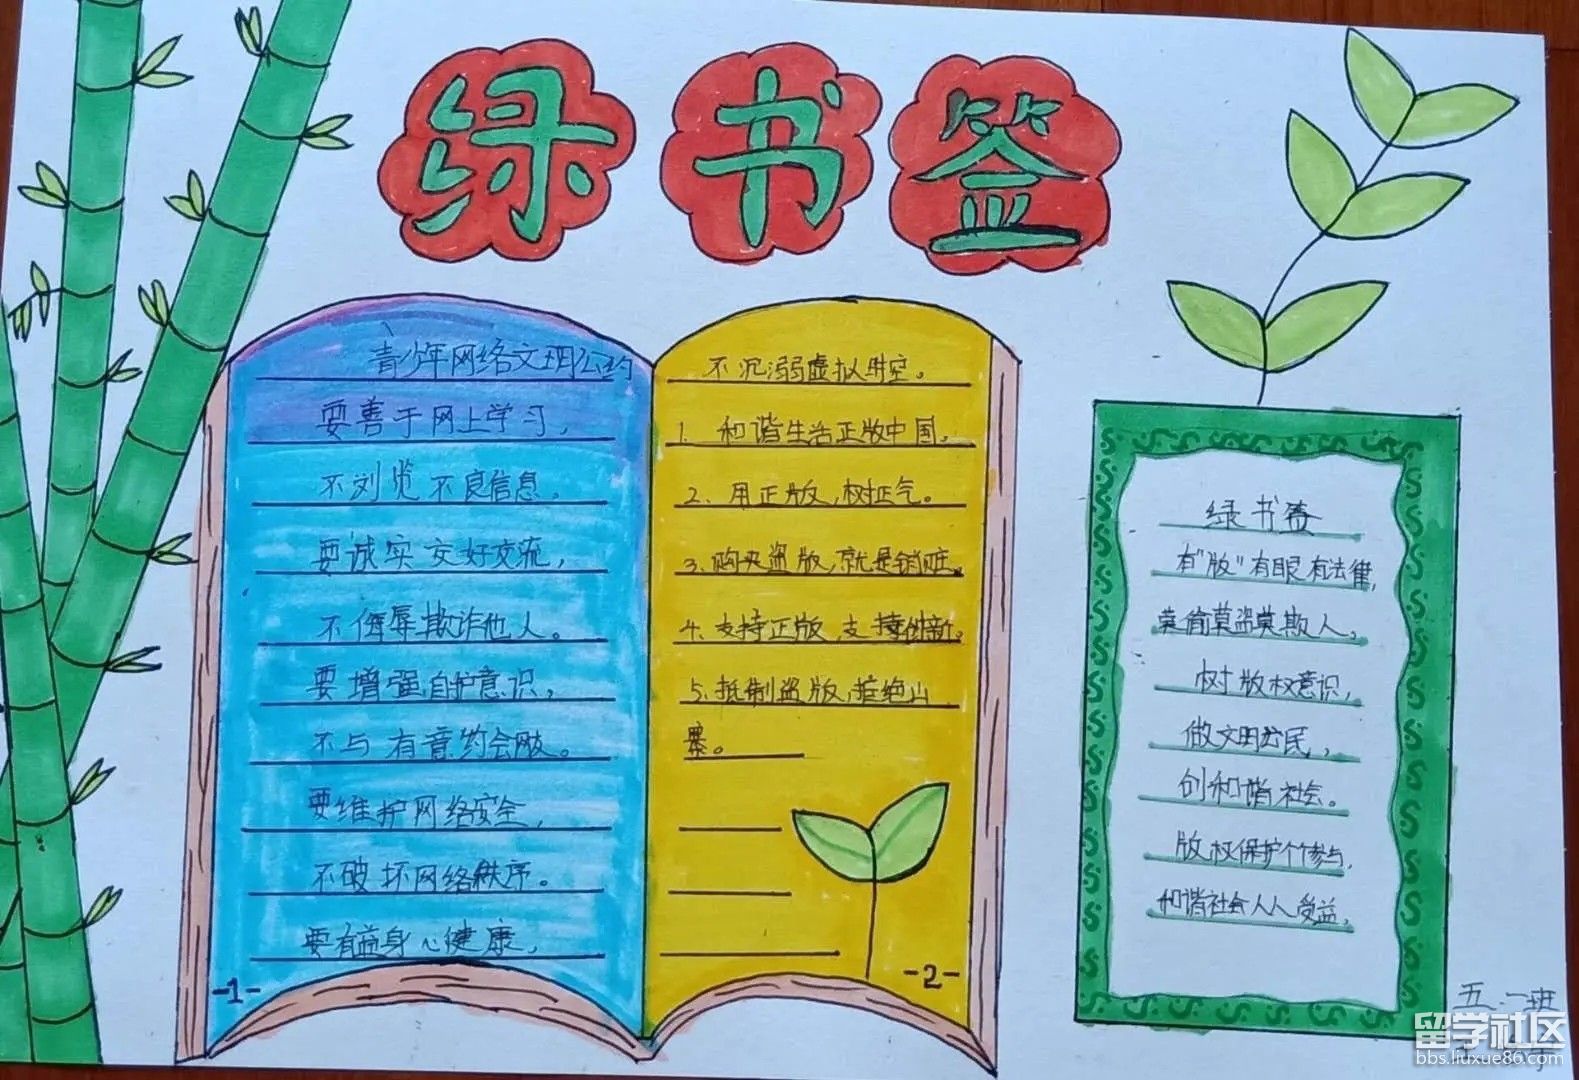 绿书签
青少年网络文明公约
要善于网上学习，
不刘览不良信息。
要诚实交好交流，
不侮辱欺诈他人。
要增强自护意识，
不与有意约会网友。
要维护网络安全，
不破坏网络秩序。
要有益身心健康，
-1-
不沉溺虚拟时空。
1. 和谐生活正版中国。
2、用正版，树正气。
3、购买盗版，就是销赃。
4、支持正版，支持创新。
5、抵制盗版，拒绝山
寨。
-2-
绿书签
有"版"有眼有法律，
莫偷莫盗莫欺人，
树版权意识，
做文明公民，
创和谐社会。
版权保护个个参与，
和谐社会人人受益，
五.一班
留学社区
bbs.liuxue86.com